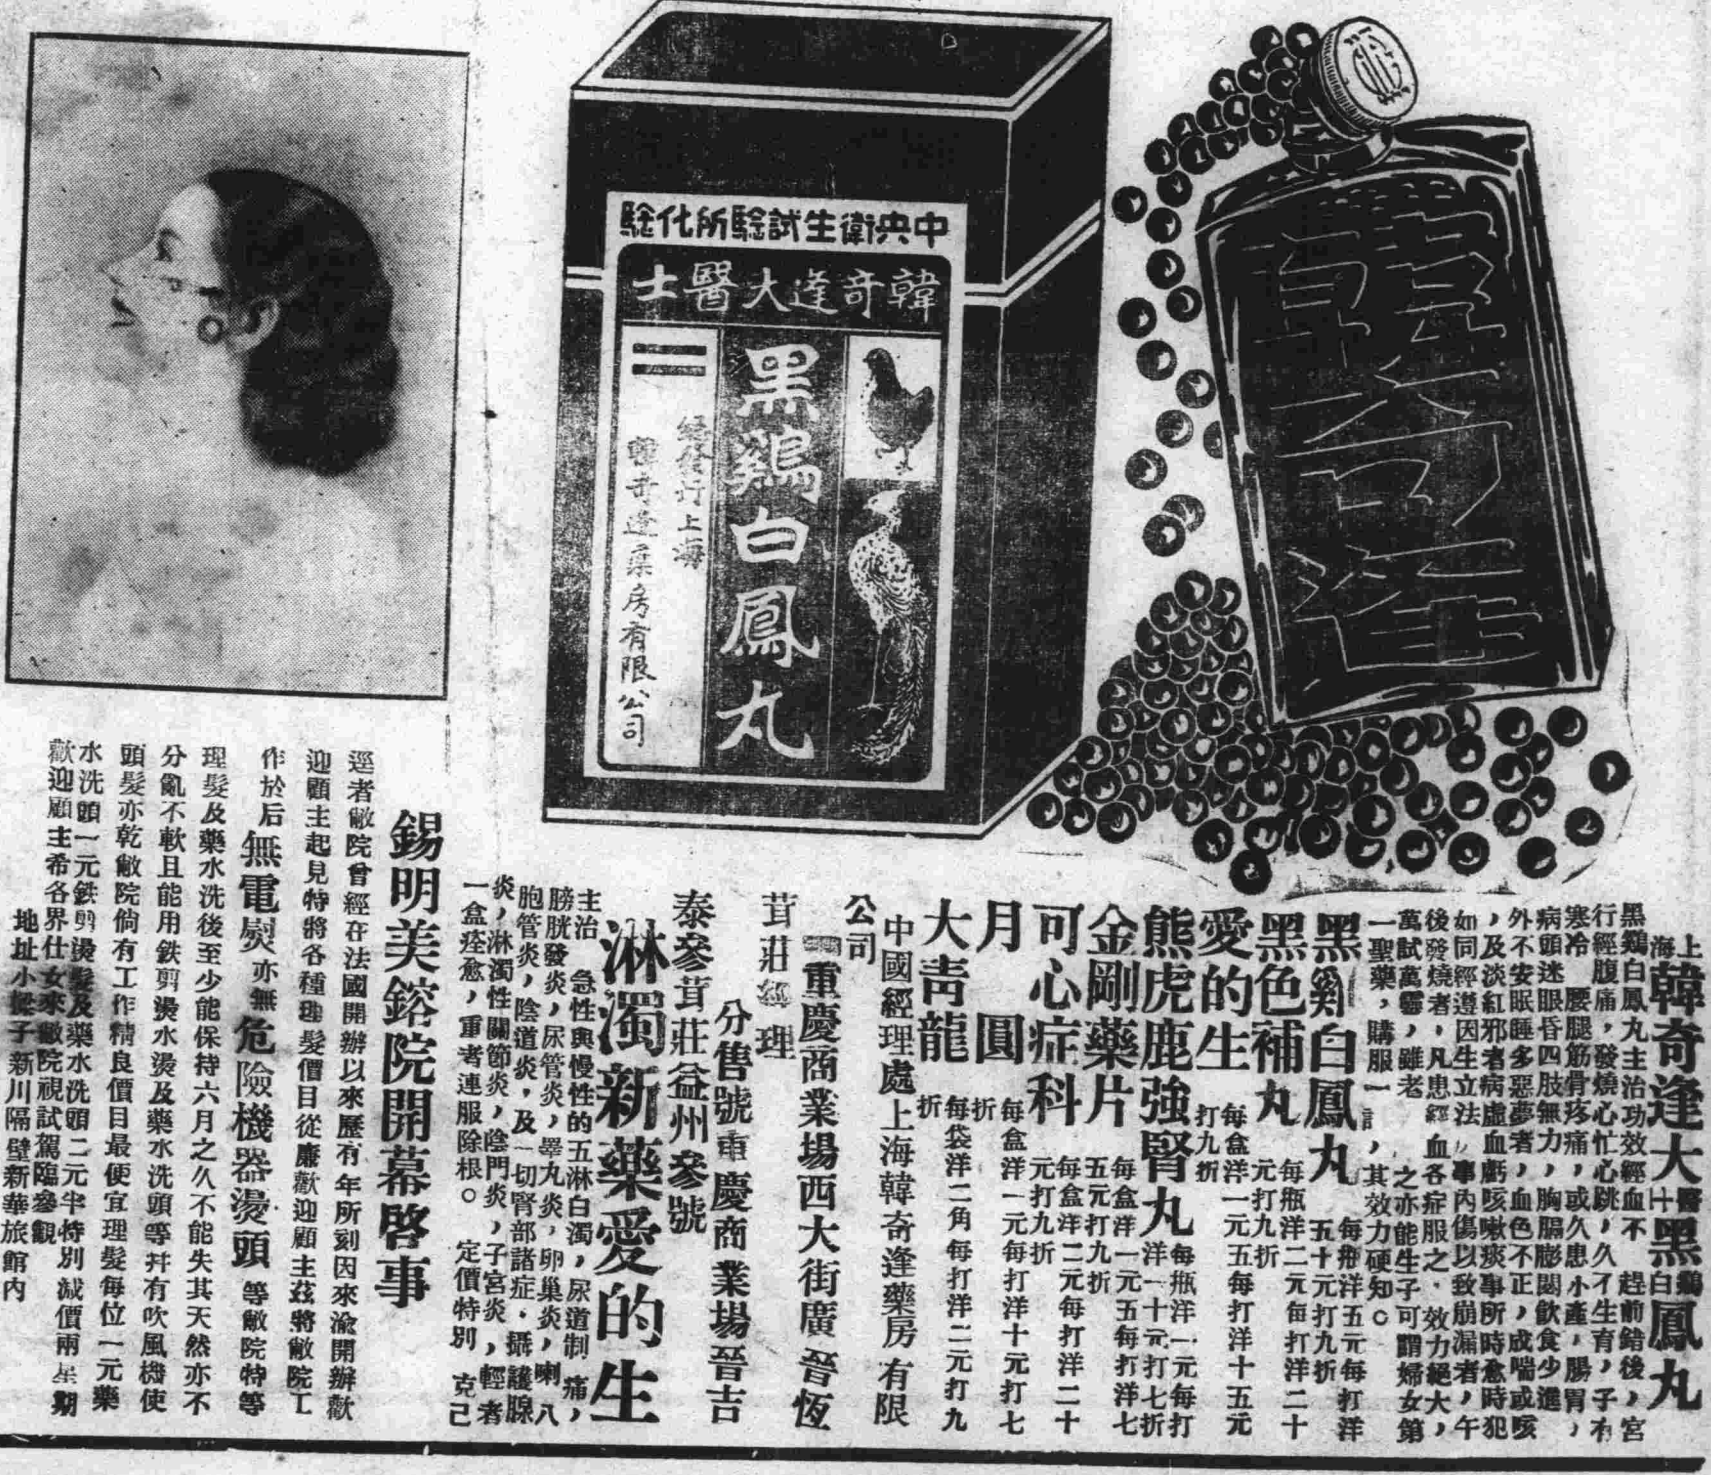 中央衛生試驗所化驗
韓奇逢大醫士
黑鷄白鳳丸
經發行上海
韓奇逢藥房有限公司
韓奇逢
上海韓奇逢大醫士黑鷄白鳳丸
黑鷄白鳳丸主治功效經血不 趕前錯後，宮
寒冷 腰腿筋骨疼痛，或久患小產，腸胃，
行經腹痛，發燒心忙心跳，久不生育，子有
病頭迷眼昏四肢無力，胸膈膨悶飲食少進
外不安眠睡多惡夢者，血色不正，成喘或咳
，及淡紅邪者病虛血虧咳嗽痰事所時愈時犯
如同經遵因生立法 事內傷以致崩漏者，午
後發燒者，凡患經血各症服之．效力絕大，
萬試萬靈，雖老 之亦能生子可謂婦女第
一聖藥，購服一 ，其效力硬知。
黑鷄白鳳丸 每瓶洋五元每打洋五十元打九折
黑色補丸 每瓶洋二元每打洋二十元打九折
愛的生 每盒洋一元五每打洋十五元打九折
熊虎鹿強腎丸 每瓶洋一元每打洋一十元打七折
金剛藥片 每盒洋一元五每打洋七五元打九折
可心症科 每盒洋二元每打洋二十元打九折
月圓 每盒洋一元每打洋十元打七折
大青龍 每袋洋二角每打洋二元打九折
中國經理處上海韓奇逢藥房有限公司
重慶商業場西大街廣晉恆茸莊經理
分售號重慶商業場晉吉泰參茸莊益州參號
淋濁新藥愛的生
主治 急性與慢性的五淋白濁，尿道制痛，
膀胱發炎，尿管炎，睪丸炎，卵巢炎，喇叭
胞管炎，陰道炎，及一切腎部諸症．攝護腺
炎，淋濁性關節炎，陰門炎，子宮炎，輕者
一盒痊愈，重者連服除根。 定價特別克己
錫明美鎔院開幕啓事
逕者敝院曾經在法國開辦以來歷有年所刻因來渝開辦歡
迎顧主起見特將各種理髮價目從廉歡迎顧主茲將敝院工
作於后無電熨亦無危險機器燙頭等敝院特等
理髮及藥水洗後至少能保持六月之久不能失其天然亦不
分亂不軟且能用鉄剪燙水燙及藥水洗頭等幷有吹風機使
頭髮亦乾敝院倘有工作精良價目最便宜理髮每位一元藥
水洗頭一元鉄剪燙髮及藥水洗頭二元半特別減價兩星期
歡迎顧主希各界仕女來敝院視試駕臨參觀
地址小樑子新川隔壁新華旅館內